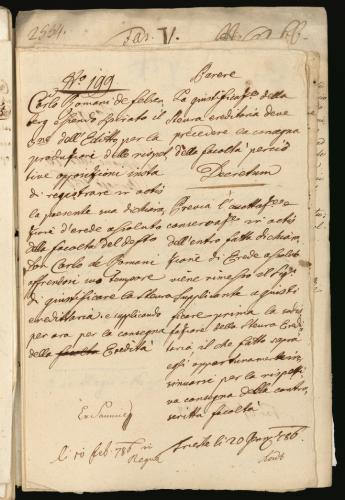 2554.
Fas. V.
No 199
Carlo Romani de
berg essendo spirato il
dell'Editto per la
produzione delle rispet-
tive opposizioni insta
di registrare in actis
la presente sua dichiara-
zione d'erede assoluto
della facoltà del defto
Carlo de Romani
offrendosi suo tempore
di giustificare la Steura
ereditaria; e supplicando
per ora per la consegna
della Eredità
li 10 feb. 786
Parere
La giustificazne della
Steura ereditaria deve
precedere la consegna
della facoltà perciò
Decretum
Previa l'esatta
conservazne in actis
dell'entro fatta dichiara-
zione di Erede assoluto
viene rimesso il
Supplicante a giusti-
ficare prima la
della Steura Eredi-
taria il che fatto saprà
egli opportunamente in-
sinuarsi per la rispetti-
va consegna della contro-
scritta facoltà
Trieste li 20 786